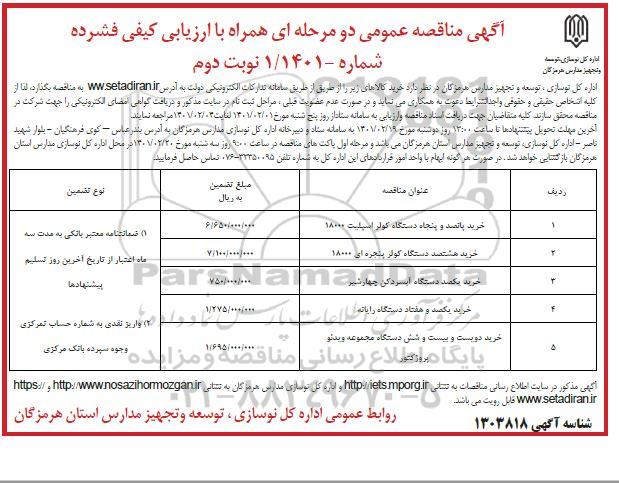 آگهی مناقصه عمومی دو مرحله ای همراه با ارزیابی کیفی فشرده
شماره -۱/۱۴۰۱ نوبت دوم
اداره کل نوسازی،توسعه
وتجهیز مدارس هرمزگان
اداره کل نوسازی ، توسعه و تجهیز مدارس هرمزگان در نظر دارد خرید کالاهای زیر را از طریق از طریق سامانه تدارکات الکترونیکی دولت به آدرس ww.setadiran.ir به مناقصه بگذارد، لذا از
کلیه اشخاص حقیقی و حقوقی واجدالشرایط دعوت به همکاری می نماید و در صورت عدم عضویت قبلی ، مراحل ثبت نام در سایت مذکور و دریافت گواهی امضای الکترونیکی را جهت شرکت در
مناقصه محقق سازند. کلیه متقاضیان جهت دریافت اسناد مناقصه وارزیابی به سامانه ستاداز روز پنج شنبه مورخ۱۴۰۱/۰۲/۰۱ لغایت۱۴۰۱/۰۲/۰۴مراجعه نمایند.
آخرین مهلت تحویل پیشنهادها تا ساعت ۱۳:۰۰ روز دوشنبه مورخ ۱۴۰۱/۰۲/۱۹ به سامانه ستاد و دبیرخانه اداره کل نوسازی مدارس هرمزگان به آدرس بندرعباس – کوی فرهنگیان - بلوار شهید
ناصر - اداره کل نوسازی، توسعه و تجهیز مدارس استان هرمزگان می باشد و مرحله اول پاکت های مناقصه در ساعت ۹:۰۰ روز سه شنبه مورخ ۱۴۰۱/۰۲/۲۰در محل اداره کل نوسازی مدارس استان
هرمزگان بازگشایی خواهد شد. در صورت هر گونه ابهام با واحد امور قراردادهای این اداره کل به شماره تلفن ۳۳۳۵۰۰۹۵-۰۷۶ تماس حاصل فرمایید.
ردیف عنوان مناقصه مبلغ تضمین به ریال نوع تضمین
۱ خرید پانصد و پنجاه دستگاه کولر اسپلیت ۱۸۰۰۰ ۶/۶۵۰/۰۰۰/۰۰۰
۲ خرید هشتصد دستگاه کولر پنجره ای ۱۸۰۰۰ ۷/۱۰۰/۰۰۰/۰۰۰
۳ خرید یکصد دستگاه آبسردکن چهارشیر ۷۵۰/۰۰۰/۰۰۰
۴ خرید یکصد و هفتاد دستگاه رایانه ۱/۲۷۵/۰۰۰/۰۰۰
۵ خرید دویست و بیست و شش دستگاه مجموعه ویدئو پروژکتور ۱/۶۹۵/۰۰۰/۰۰۰
۱) ضمانتنامه معتبر بانکی به مدت سه
ماه اعتبار از تاریخ آخرین روز تسلیم
پیشنهادها
۲) واریز نقدی به شماره حساب تمرکزی
وجوه سپرده بانک مرکزی
آگهی مذکور در سایت اطلاع رسانی مناقصات به نشانی http://iets.mporg.ir و اداره کل نوسازی مدارس هرمزگان به نشانی http://www.nosazihormozgan.ir و https://
www.setadiran.ir قابل رویت می باشد.
روابط عمومی اداره کل نوسازی ، توسعه وتجهیز مدارس استان هرمزگان
شناسه آگهی ۱۳۰۳۸۱۸
ParsNamadData
پایگاه اطلاع رسانی مناقصه و مزایده
۰۲۱-۸۸۳۴۹۶۷۰-۵